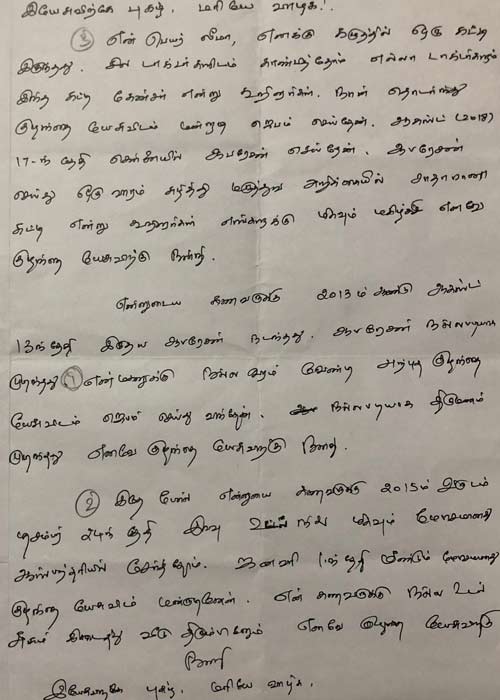 இயேசுவிற்கே புகழ். மரியே வாழ்க.
③ என் பெயர் லீமா, எனக்கு கருத்தில் ஒரு கட்டி
இருந்தது. சில டாக்டர்களிடம் காண்பித்தோம் எல்லா டாக்டர்களும்
இந்த கட்டி கேன்சர் என்று கூறினார்கள். நான் தொடர்ந்து
குழந்தை யேசுவிடம் மன்றாடி ஜெபம் செய்தேன். ஆகஸ்ட் (2018)
17-ந் தேதி சென்னையில் ஆபரேசன் செய்தேன். ஆபரேசன்
செய்து ஒரு வாரம் கழித்து மருத்துவ அறிக்கையில் சாதாரண
கட்டி என்று கூறினார்கள் எங்களுக்கு மிகவும் மகிழ்ச்சி எனவே
குழந்தை யேசுவிற்கு நன்றி.
என்னுடைய கணவருக்கு 2013 ம் ஆண்டு ஆகஸ்ட்
13ந் தேதி இருதய ஆபரேசன் நடந்தது. ஆபரேசன் நல்லபடியாக
முடிந்தது ① என் மகளுக்கு நல்ல வரம் வேண்டி அற்புத குழந்தை
யேசுவிடம் ஜெபம் செய்து வந்தேன். நல்லபடியாக திருமணம்
முடிந்தது எனவே குழந்தை யேசுவிற்கு நன்றி.
② இதே போல் என்னுடைய கணவருக்கு 2015ம் வருடம்
டிசம்பர் 24ந் தேதி இரவு உடல் நிலை மிகவும் மோசமானது
ஆஸ்பத்திரியில் சேர்த்தோம். ஜனவரி 1ந் தேதி மீண்டும் மோசமானது
குழந்தை யேசுவிடம் மன்றாடினேன். என் கணவருக்கு நல்ல உடல்
சுகம் கிடைத்து வீடு திரும்பினோம் எனவே குழந்தை யேசுவிற்கு
நன்றி
இயேசுவுக்கே புகழ். மரியே வாழ்க.